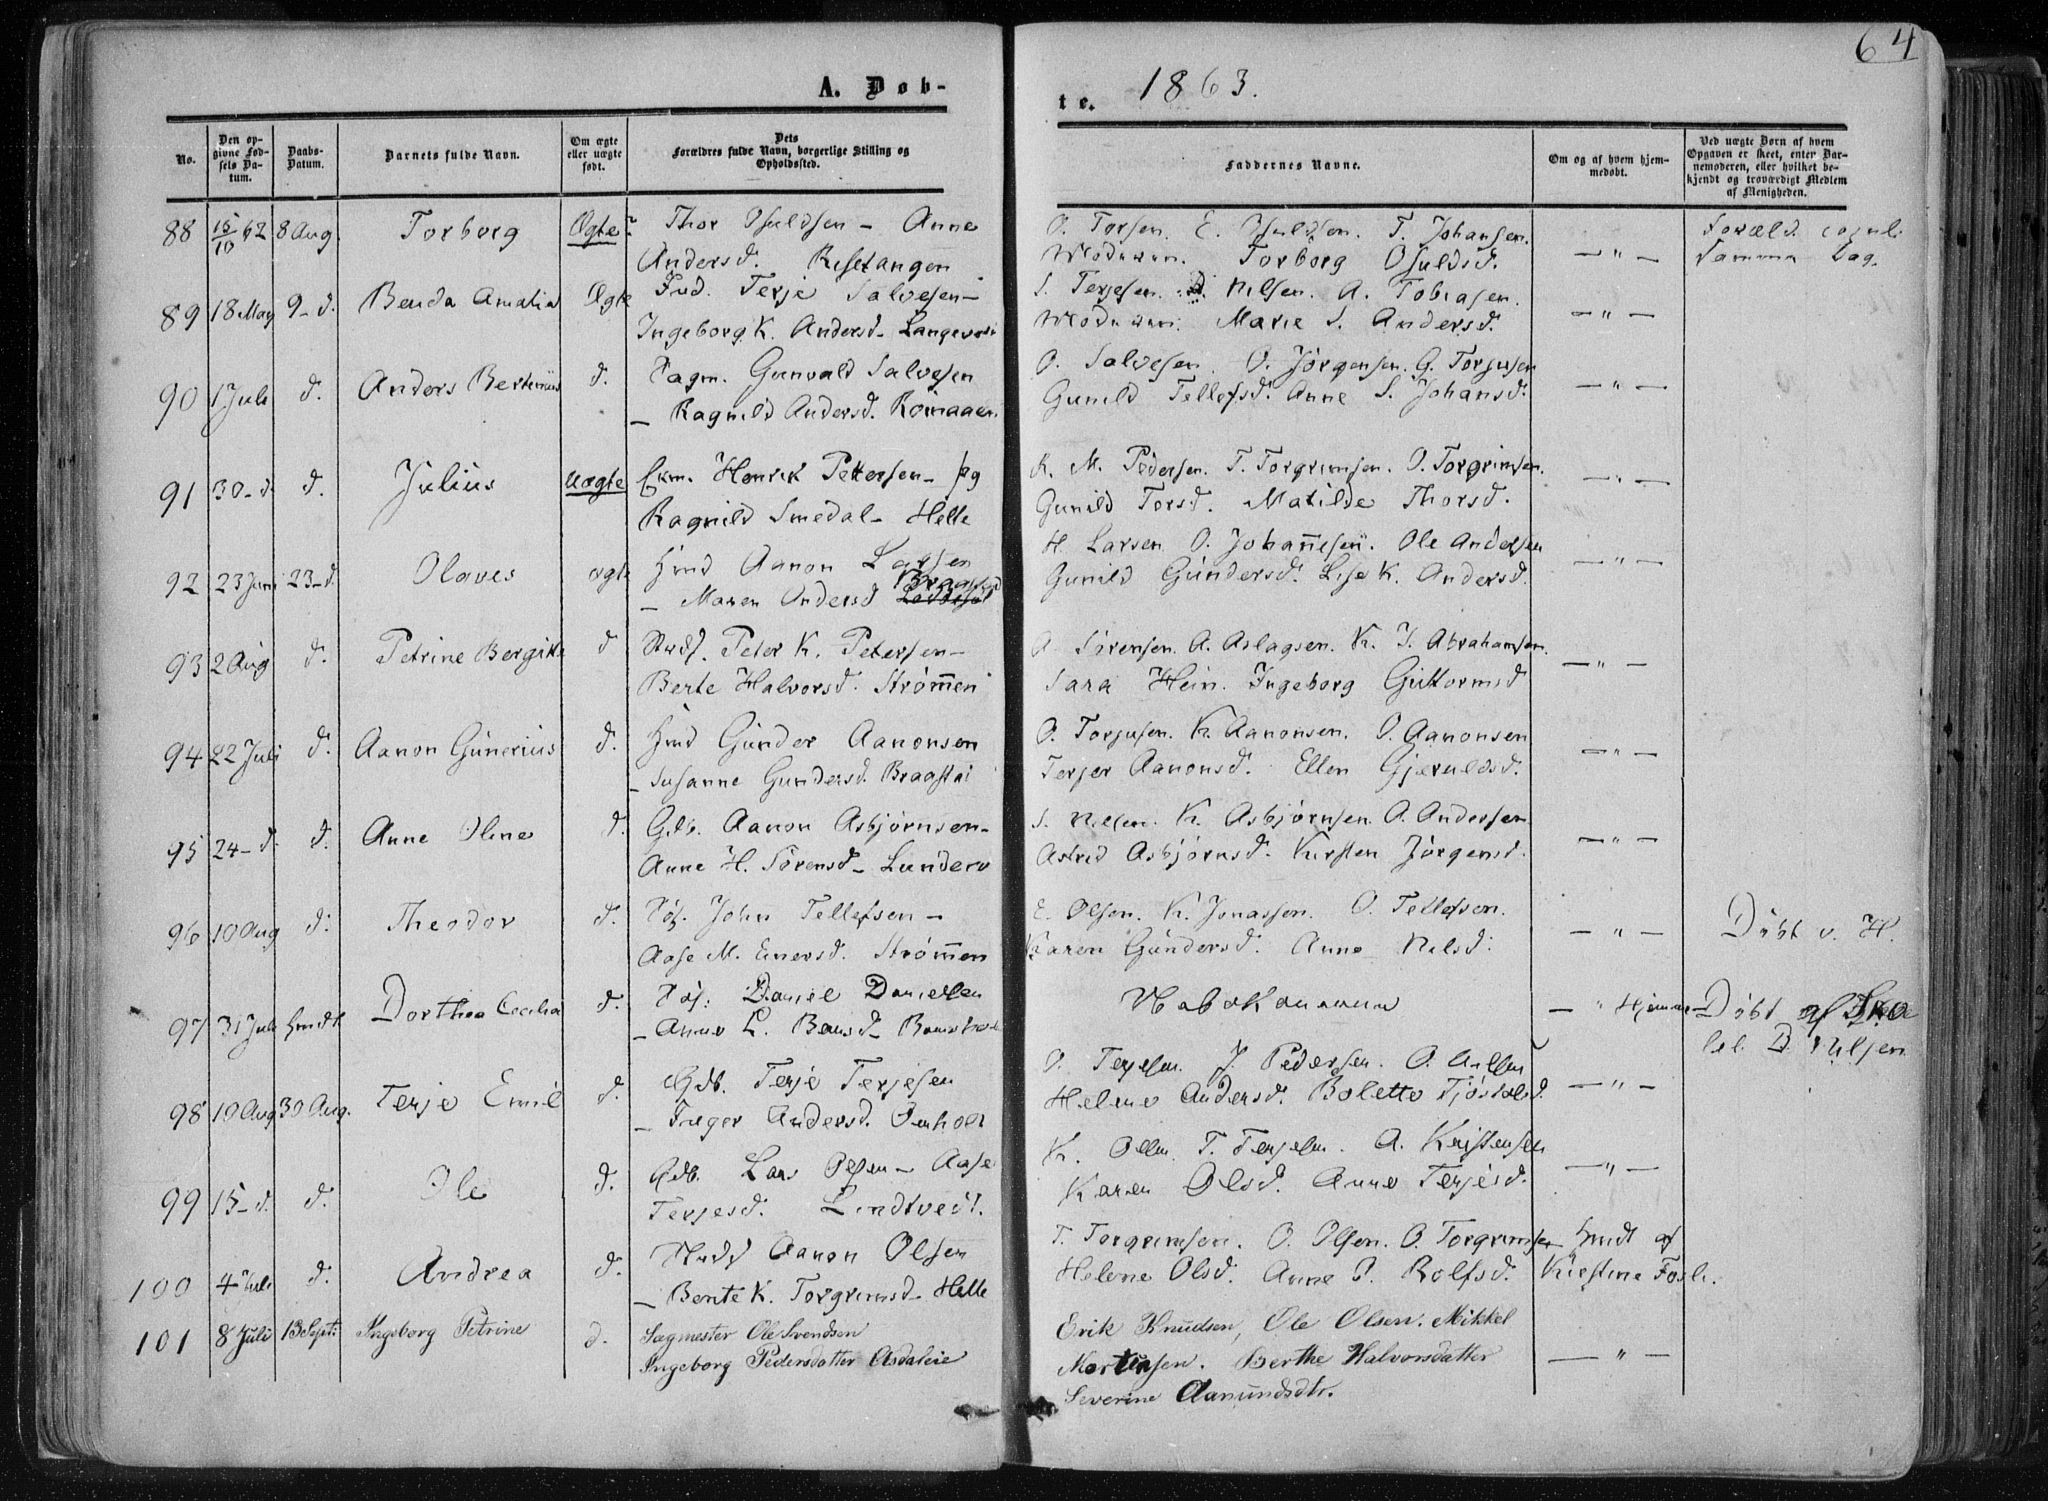 64
A. Døb-
te. 1863.
No.
Den op-
givne Fød-
sels Da-
tum.
Daabs-
Datum.
Barnets fulde Navn.
Om ægte
eller uægte
født.
Dets
Forældres fulde Navn, borgerlige Stilling og
Opholdssted.
Faddernes Navne.
Om og af hvem hjem-
medøbt.
Ved uægte Børn af hvem
Opgaven er skeet, enten Bar-
nemoderen, eller hvilket be-
kjendt og troværdigt Medlem
af Menigheden.
88 15/10 62 8 Aug. Torborg Ægte Thor Osuldsen - Anne
Andersd. Risetangen
O. Torsen. E. Osuldsen. T. Johansen.
Moderen. Torborg Osuldsd. — " —
Foræld. copul.
samme Dag.
89 18 May 9 - d. Benda Amalia Ægte Ind. Terje Salvesen -
Ingeborg K. Andersd -
S. Terjesen. Nilsen. A. Tobiasen.
Moderen. Marie S. Andersd. — " —
90 1 Juli d. Anders d. Gunvald Salvesen
- Ragnild Andersd.
O. Salvesen. O. Jörgensen. G. Torjusen
Gunild Tellefsd. Anne S. Johansd. — " —
91 30 - d. d. Julius uægte Henrik Pettersen - pg
Ragnild Smedal - Helle
K. M. Pedersen. T. Torgrimsen. O. Torgrimsen.
Gunild Torsd. Matilde Thorsd. — " —
92 23 Juni 23 - d. Olaves ægte Hmd Aanon Larsen
- Maren Andersd
H. Larsen O. Johannesen. Ole Andersen
Gunild Gundersd. Lise K. Andersd. — " —
93 2 Aug d. Petrine Bergitte d Peter K. Petersen -
Berte Halvorsd. Strømmen
A. Sörensen. A. Aslagsen. K. I. Abrahamsen.
Sara Hein. Ingeborg Guttormsd — " —
94 22 Juli d. Aanon Gunerius d. Hmd Gunder Aanonsen
- Susanne Gundersd. Braastad
O. Torjusen. K. Aanonsen. O. Aanonsen
Terjer Aanonsd. Ellen Gjeruldsd. — " —
95 24 - d. d. Anne Oline d. Gdb. Aanon Asbjørnsen -
Anne H. Sörensd -
S. Nilsen. K. Asbjørnsen. A. Andersen.
Astrid Asbjørnsd. Kirsten Jörgensd. — " —
96 10 Aug d. Theodor d. Pös. John Tellefsen -
Aase M. Einersd. Strømmen
E. Olsen. K. Jonassen. O. Tellefsen.
Karen Gundersd. Anne Nilsd. — " — Döbt v. H.
97 31 Juli hmdt Dorthea Cecilia d. Pös: Daniel Danielsen
- Anne L.
— " Hjemme - Döbt af
98 10 Aug 30 Aug. Terje Emil d. Gdb. Terje Terjesen
- Inger Andersd.
O. Terjesen. J. Pedersen. O.
Helene Andersd. Bolette — " —
99 15 - d. d. Ole d. Gdb. Lars Olsen - Aase
Terjesd. Lindtvedt.
K. Olsen. T. Terjesen. A. Kristensen
Karen Olsd. Anne Terjesd. — " —
100 4 Juli d. Andrea d. Aanon Olsen
- Bente K. Torgrimsd - Helle
T. Torgrimsen. O. Olsen. O. Torgrimsen hmdt af
Helene Olsd. Anne P. Rolfsd. Kirstine
101 8 Juli 13 Sept: Ingeborg Petrine d. Sagmester Ole Svendsen
Ingeborg Pedersdatter Asdaleie
Erik Knudsen, Ole Olsen. Mikkel
Mortensen. Berthe Halvorsdatter — " —
Severine Aamundsdtr.